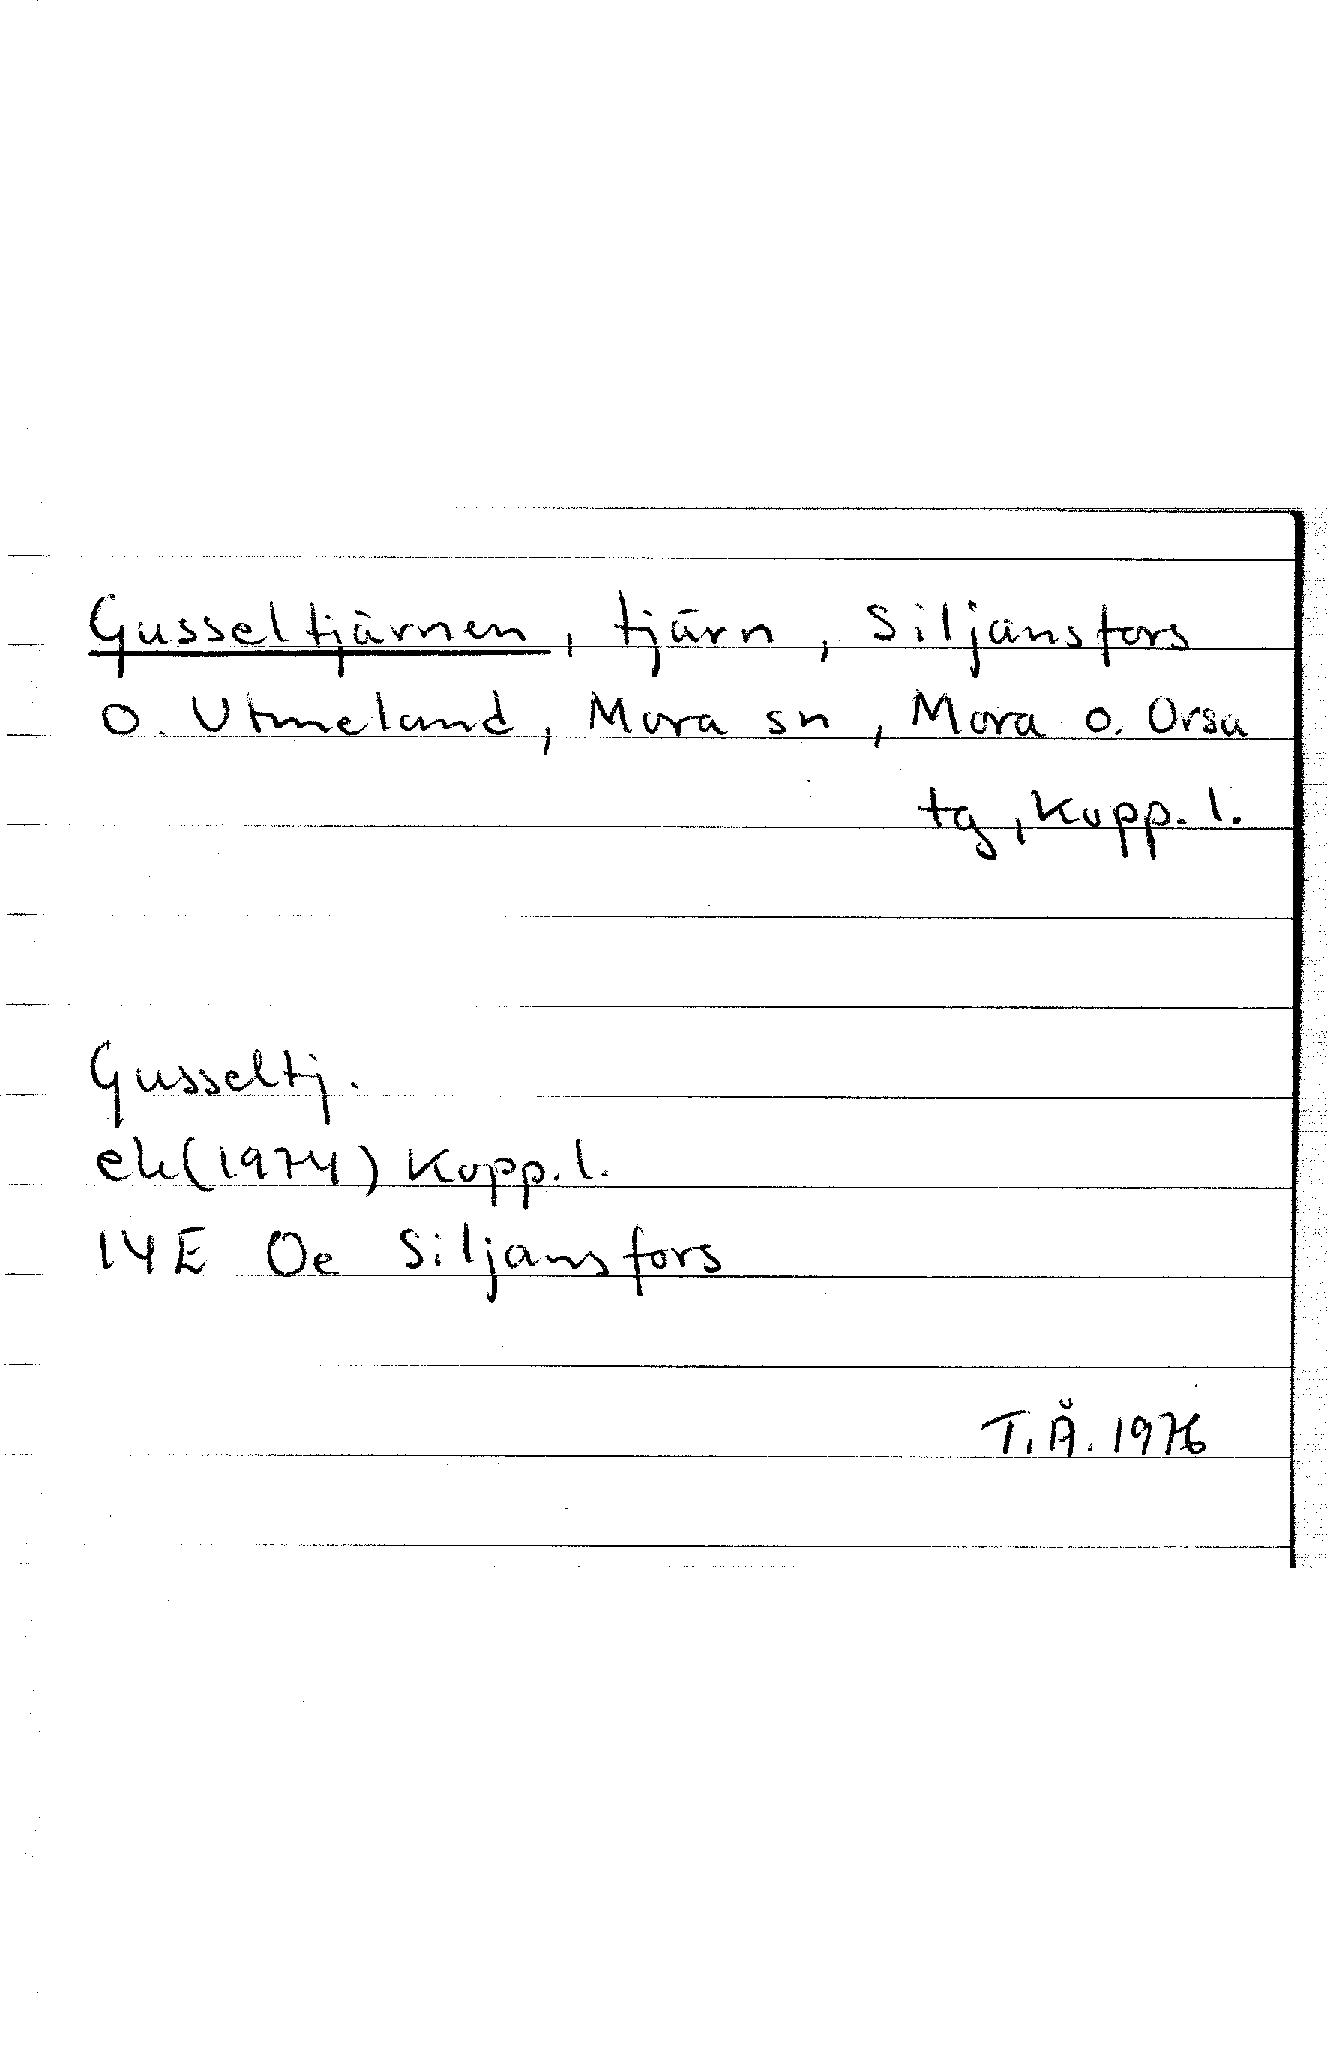 Gusseltjärnen, tjärn, Siljansfors
o. Utmeland, Mora sn, Mora o. Orsa
tg, Kopp. l.
Gusseltj.
ek (1974) Kopp. l.
14E Oe Siljansfors
T.Å. 1976